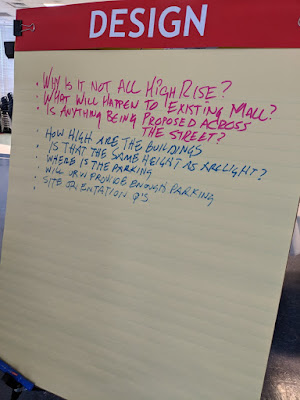 DESIGN
• WHY IS IT NOT ALL HIGH RISE?
• WHAT WILL HAPPEN TO EXISTING MALL?
• IS ANYTHING BEING PROPOSED ACROSS
THE STREET?
• HOW HIGH ARE THE BUILDINGS
• IS THAT THE SAME HEIGHT AS ARCLIGHT?
• WHERE IS THE PARKING
• WILL URW PROVIDE ENOUGH PARKING
• SITE ORIENTATION Q'S.